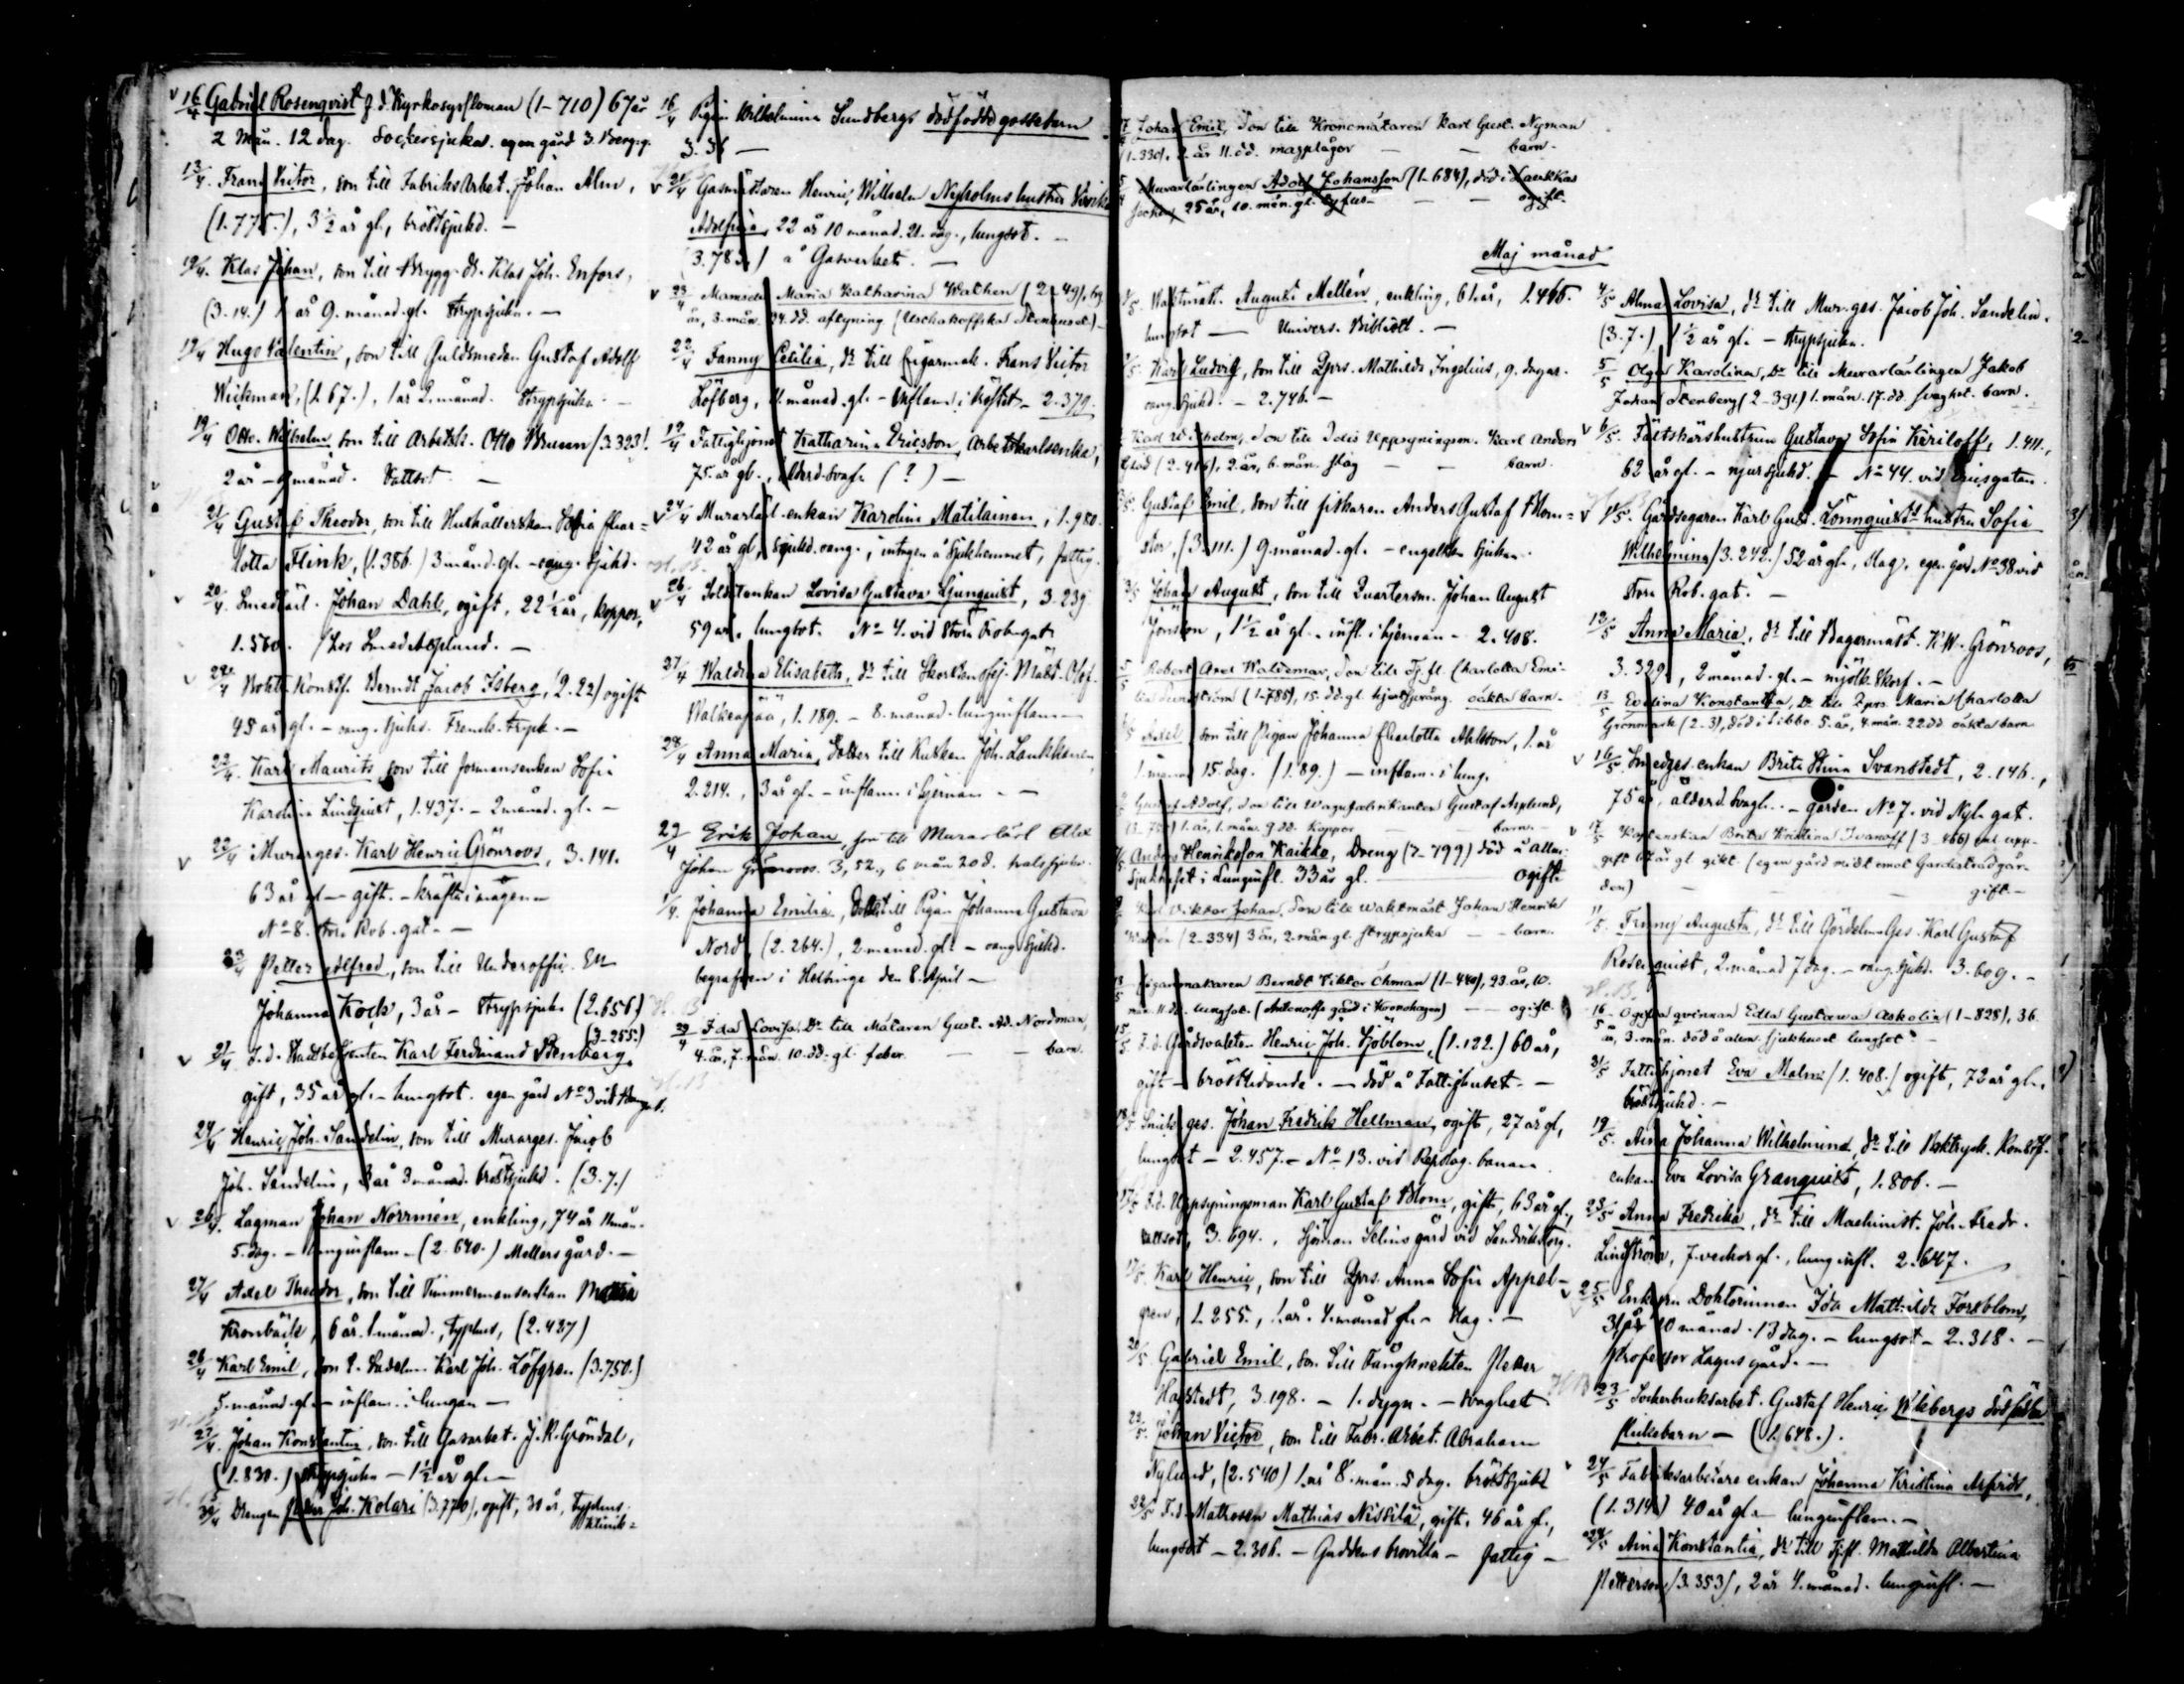 16/4 Gabriel Rosenqvist f.d. Kyrkosyssloman (1-710) 67 år
2 Mån. 12 dag. Sockersjukd. egen gård 3. Bergsg.
13/4. Frans Victor, son till Fabriks Arbet. Johan Alm,
(1.775.), 3½ år gl., bröstsjukd. —
19/4. Klas Johan, son till Brygg. dr. Klas Joh. Enfors,
(3.14.) 1 år 9. månad. gl. Strypsjukn. —
19/4 Hugo Valentin, son till Guldsmeden Gustaf Adolf
Wickman, (1.67.), 1 år 2. månad. Strypsjukn. —
19/4 Otto Wilhelm, son till Arbetsk. Otto Bruun (3.323).
2 år - 9 månad. Vattsot. —
21/4 Gustaf Theodor, son till Hushållerskan Sofia Char=
lotta Flink, (1.386.) 3 månd. gl. - Sjukd.
20/4. Smedlärl. Johan Dahl, ogift, 22½ år, koppor,
1.560. (hos Smed Asplund. —
22/4 Berndt Jacob Isberg, (2.22) ogift
45 år gl. — Sjukd. Frenck. tryck. —
22/4. Karl Maurits, son till formansenkan Sofia
Karolina Lindquist, 1.437. - 2 månad. gl. —
22/4 Murarges. Karl Henric Grönroos, 3.141.
63 år gl — gift. - kräfta i magen —
No 8. Stora Rob. gat. —
23/4 Petter Alfred, son till Underoffic. En
Johanna Kock, 3 år - Strypsjukn. (2.656)
(3-255.)
21/4 f.d. Stadsbetjenten Karl Ferdinand Stenberg,
gift, 35 år gl. - lungsot. egen gård No 3 vid
24/4 Henric Joh. Sandelin, son till Murarges. Jacob
Joh. Sandelin, 3 år 3 månad. bröstsjukd. (3.7.)
26/4. Lagman Johan Norrmén, enkling, 74 år 11 mån.
5. dag. - lunginflam. - (2.640.) Mellers gård. —
27/4 Axel Theodor, son till Timmermansenkan Maria
Kronbäck, 6 år. 1 månad., typhus, (2.437)
26/4 Karl Emil, son t. Sadelm. Karl Joh. Löfgren (3.750.)
5. månad. gl. - inflam. i lungan —
27/4. Johan Konstantin, son till Gasarbet. J. R. Gröndal,
(1.830.) strypsjukn - 1½ år gl. —
Drengen Joh. Kolari (3.770), ogift, 30 år, Typhus.
klinik=
16/4 Pigan Wilhelmina Sundbergs dödfödde gossebarn
3.36 —
21/4 Gasmästaren Henric Wilhelm Nyholms hustru
Adolfina, 22 år 10 månad. 21. dag., lungsot. —
(3.783.) å Gasverket. —
23/4 Mamsell Maria Katharina Wathen (2-49),
år, 3. mån. 24. dd. aftyning (Uschakoffska Stenhuset) —
22/4 Fanny Cecilia, dr till Cigarmak. Frans Victor
Löfberg, 11. månad. gl. - Inflam. i bröstet - 2.379.
19/4 Fattighjonet Katharina Ericsdon, Arbetskarlsenka,
75. år gl., ålderd. svagh. (?) —
24/4 Murarlärl. enkan Karolina Matilainen, 1.980.
42 år gl., sjukd., intagen å Sjukhemmet, fattig.
26/4 Soldatenkan Lovisa Gustava Ljungquist, 3.239
59 år, lungsot. No 4. vid Stora Robsgat.
27/4 Waldina Elisabeth, dr till Skorstensfej. Mäst. Olof
Walkeapää, 1.189. - 8. månad. lunginflam. —
28/4 Anna Maria, dotter till Kusken Joh. Laukkanen,
2.214., 3 år gl. - inflam i hjernan —
29/4 Erik Johan, son till Murarlärl. Alex
Johan Grönroos. 3,52., 6 mån 20 d. halssjukn.
1/4. Johanna Emilia, dotter till Pigan Johanna Gustava
Nord, (2.264.), 2 månad. gl. — sjukd.
begrafven i Helsinge den 8. April —
29/4 Ida Lovisa, Dr till Mätaren Gust. Ad. Nordman,
4. år, 7. mån. 10. dd. gl. feber. — barn.
Johan Emil, Son till Kronomätaren Karl Gust. Nyman
(1-330), 2. år 11. dd. magplågor — — barn.
Murarlärlingen Adolf Johansson (1-684), död i Laukkas
Socken, 25 år, 10. mån. gl. tyfus — — ogift.
Maj månad
1/5. Vaktmäst. August Mellén, enkling, 61. år, 1.466.
lungsot — Univers. Bibliot. —
Karl Ludvig, son till Qprs. Mathilda Ingelius, 9. dagar.
sjukd. - 2.746. —
Karl Wilhelm, Son till Polis Uppsyningsm. Karl Anders
(2-416), 2. år, 6. mån. slag — — barn.
Gustaf Emil, son till fiskaren Anders Gustaf Blom=
(3.111.) 9. månad. gl. - engelska sjukan.
3/5 Johan August, son till Quartersm. Johan August
Jonsson, 1½ år gl. - infl. i hjernan - 2.408.
5/5 Robert Axel Waldemar, Son till Tj.fl. Charlotta Emi-
lia Sundström (1-785), 15. dd. gl. oäkta barn.
Axel, son till Pigan Johanna Charlotta Ahlsson, 1. år
1. månad 15. dag. (1.89.) — inflam. i lung.
Gustaf Adolf, Son till Wagnfabrikanten Gustaf Asplund,
1. år, 1. mån. 9 dd. koppor — barn.
Anders Henriksson Kaikko, Dreng (2-799) död å Allm.
Sjukhuset i Lunginfl. 33 år gl. — ogift
Karl Viktor Johan, Son till Waktmäst Johan Henrik
(2-334) 3 år, 2. mån gl. strypsjuka — barn.
13/5 Cigarrmakaren Berndt Viktor Öhman (1-440), 23. år, 10.
mån 11. dd. lungsot. (Antonoffs gård i Kronohagen) — ogift.
15/5. F.d. Gårdsvakten Henric Joh. Sjöblom, (1.122.) 60 år,
gift — bröstlidande. — död å Fattighuset. —
18/5. Snick. ges. Johan Fredrik Hellman, ogift, 27 år gl,
lungsot — 2.457. — No 13. vid Repslag. banan.
17/5 F.d. Uppsyningsman Karl Gustaf Blom, gift, 63 år gl.,
vattsot, 3.694., Sjöman Selins gård vid Sandvikstorg.
Karl Henric, son till Qprs. Anna Sofia Appel-
gren, 1.255., 1. år. 4. månad gl. - slag. —
20/5 Gabriel Emil, son till Fångknekten Petter
Hagstedt, 3.198. — 1. dygn. — svaghet
23/5. Johan Victor, son till Fabr. Arbet. Abraham
Nylund, (2.540) 1. år 8. mån. 5 dag. bröstsjukd
22/5 F.d. Matrosen Mathias Nissilä, gift, 46 år gl.,
lungsot — 2.306. — — fattig —
4/5 Alma Lovisa, dr till Mur. ges. Jacob Joh. Sandelin.
(3.7.) 1½ år gl. — strypsjukn.
5/5 Olga Karolina, Dr till Murarlärlingen Jakob
Johan Stenberg (2-391) 1. mån. 17. dd. svaghet. barn.
6/5. Fältskärshustrun Gustava Sofia Kiriloff, 1.411.,
62 år gl. — njursjukd. — No 44. vid
Gårdsegaren Karl Gust. Lönnquists hustru Sofia
Wilhelmina (3.242.) 52 år gl., slag, egen gård No 38 vid
Stora Rob. gat. —
12/5 Anna Maria, dr till Bagarmäst. K.W. Grönroos,
3.329., 2 månad. gl. — mjölkskorf. —
13/5 Evelina Konstantia, Dr till Qprs. Maria Charlotta
Grönmark (2-3), död i Sibbo 5. år, 4. mån. 22 dd oäkta barn
16/5. Smedges. enkan Brita Stina Svanstedt, 2.146.,
75 år, ålderd. svagh. — gården No 7. vid Nyl. gat.
17/5 Brita Kristina Ivanoff (3-466)
gift 67 år gl gikt (egen gård midt emot Gardesträdgår-
den) — gift —
11/5. Fanny Augusta, dr till Gördelm. Ges. Karl Gustaf
Rosenquist, 2. månad 7 dag. — sjukd. 3.609. —
16/5 Ogifta qvinnan Edla Gustava Askolin (1-828), 36.
år, 3. mån. död å allm. sjukhuset lungsot —
31/5 Fattighjonet Eva Malm (1.408.) ogift, 72 år gl.,
bröstsjukd. —
19/5. Aina Johanna Wilhelmina, dr till Boktryck. Konstf.
enkan Eva Lovisa Granquist, 1.806. —
23/5 Anna Fredrika, dr till Machinist. Joh. Fredr.
Lindström, 7. veckor gl., lunginfl. 2.647.
25/5 Enkefru Doktorinnan Ida Mathilda Forsblom,
31 år 10 månad. 13 dag. — lungsot — 2.318. —
Professor Lagus gård. —
23/5 Sockerbruksarbet. Gustaf Henric Wikbergs dödfödda
flickebarn — (1.648.).
24/5 Fabriksarbetare enkan Johanna Kristina Asfrid,
(1.314.) 40 år gl. — lunginflam. —
Aina Konstantia, dr till Tj.fl. Mathilda Albertina
Petterson (3.353), 2 år 4. månad. lunginfl. —